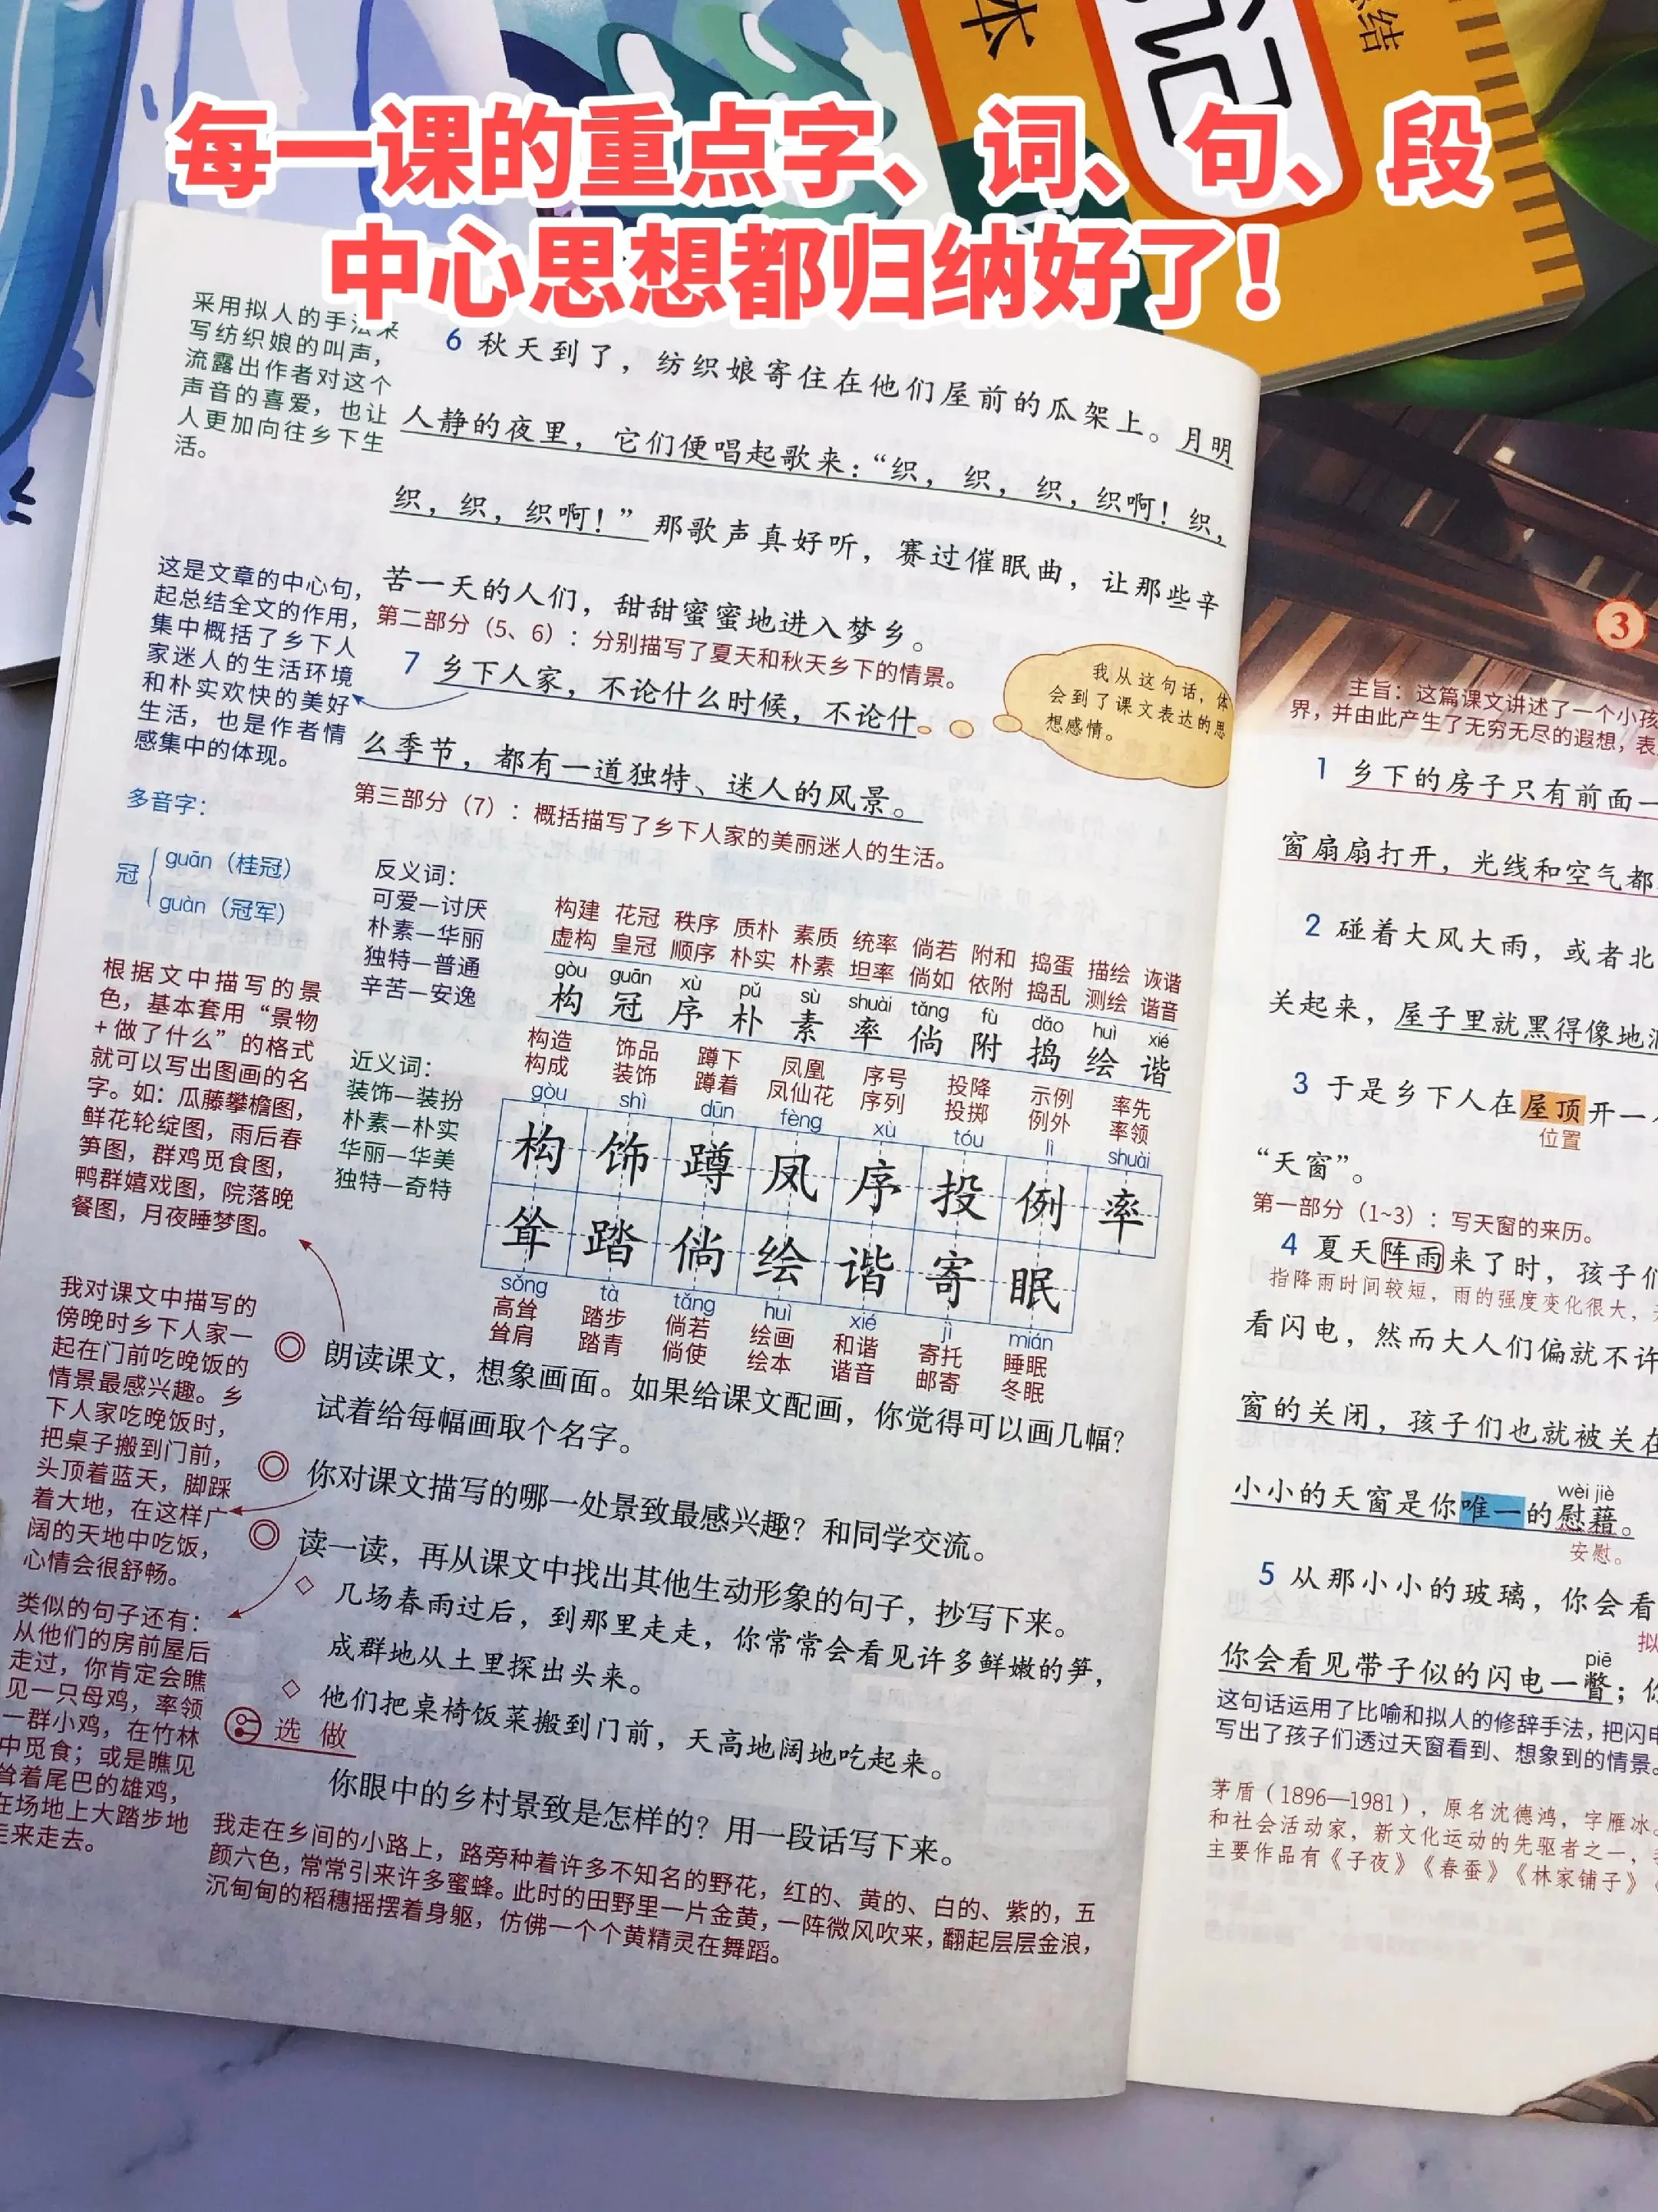 每一课的重点字、词、句、段
中心思想都归纳好了！
本
记
结
采用拟人的手法来
写纺织娘的叫声，
流露出作者对这个
声音的喜爱，也让
人更加向往乡下生
活。
6 秋天到了，纺织娘寄住在他们屋前的瓜架上。月明
人静的夜里，它们便唱起歌来：“织，织，织，织啊！织，
织，织，织啊！”那歌声真好听，赛过催眠曲，让那些辛
苦一天的人们，甜甜蜜蜜地进入梦乡。
第二部分（5、6）：分别描写了夏天和秋天乡下的情景。
这是文章的中心句，
起总结全文的作用，
集中概括了乡下人
家迷人的生活环境
和朴实欢快的美好
生活，也是作者情
感集中的体现。
7 乡下人家，不论什么时候，不论什
么季节，都有一道独特、迷人的风景。
我从这句话，体
会到了课文表达的思
想感情。
第三部分（7）：概括描写了乡下人家的美丽迷人的生活。
多音字：
冠
guān（桂冠）
guàn（冠军）
反义词：
可爱—讨厌
朴素—华丽
独特—普通
辛苦—安逸
近义词：
装饰—装扮
朴素—朴实
华丽—华美
独特—奇特
构建 花冠 秩序 质朴 素质 统率 倘若 附和 捣蛋 描绘 诙谐
虚构 皇冠 顺序 朴实 朴素 坦率 倘如 依附 捣乱 测绘 谐音
gòu guān xù pǔ sù shuài tǎng fù dǎo huì xié
构 冠 序 朴 素 率 倘 附 捣 绘 谐
构造 饰品 蹲下 凤凰 序号 投降 示例 率先
构成 装饰 蹲着 凤仙花 序列 投掷 例外 率领
gòu shì dūn fèng xù tóu lì shuài
构 饰 蹲 凤 序 投 例 率
耸 踏 倘 绘 谐 寄 眠
sǒng tà tǎng huì xié jì mián
高耸 踏步 倘若 绘画 和谐 寄托 睡眠
耸肩 踏青 倘使 绘本 谐音 邮寄 冬眠
根据文中描写的景
色，基本套用“景物
+做了什么”的格式
就可以写出图画的名
字。如：瓜藤攀檐图，
鲜花轮绽图，雨后春
笋图，群鸡觅食图，
鸭群嬉戏图，院落晚
餐图，月夜睡梦图。
朗读课文，想象画面。如果给课文配画，你觉得可以画几幅？
试着给每幅画取个名字。
我对课文中描写的
傍晚时乡下人家一
起在门前吃晚饭的
情景最感兴趣。乡
下人家吃晚饭时，
把桌子搬到门前，
头顶着蓝天，脚踩
着大地，在这样广
阔的天地中吃饭，
心情会很舒畅。
你对课文描写的哪一处景致最感兴趣？和同学交流。
读一读，再从课文中找出其他生动形象的句子，抄写下来。
◇ 几场春雨过后，到那里走走，你常常会看见许多鲜嫩的笋，
成群地从土里探出头来。
◇ 他们把桌椅饭菜搬到门前，天高地阔地吃起来。
类似的句子还有：
从他们的房前屋后
走过，你肯定会瞧
见一只母鸡，率领
一群小鸡，在竹林
中觅食；或是瞧见
耸着尾巴的雄鸡，
在场地上大踏步地
走来走去。
选做
你眼中的乡村景致是怎样的？用一段话写下来。
我走在乡间的小路上，路旁种着许多不知名的野花，红的、黄的、白的、紫的，五
颜六色，常常引来许多蜜蜂。此时的田野里一片金黄，一阵微风吹来，翻起层层金浪，
沉甸甸的稻穗摇摆着身躯，仿佛一个个黄精灵在舞蹈。
3
主旨：这篇课文讲述了一个小孩
界，并由此产生了无穷无尽的遐想，表
1 乡下的房子只有前面一
窗扇扇打开，光线和空气都
2 碰着大风大雨，或者北
关起来，屋子里就黑得像地洞
3 于是乡下人在屋顶开一
位置
“天窗”。
第一部分（1~3）：写天窗的来历。
4 夏天阵雨来了时，孩子们
指降雨时间较短，雨的强度变化很大，
看闪电，然而大人们偏就不许
窗的关闭，孩子们也就被关在
wèi jiè
小小的天窗是你唯一的慰藉。
安慰。
5 从那小小的玻璃，你会看
拟
piē
你会看见带子似的闪电一瞥；你
这句话运用了比喻和拟人的修辞手法，把闪电
写出了孩子们透过天窗看到、想象到的情景。
茅盾（1896—1981），原名沈德鸿，字雁冰。
和社会活动家，新文化运动的先驱者之一，
主要作品有《子夜》《春蚕》《林家铺子》